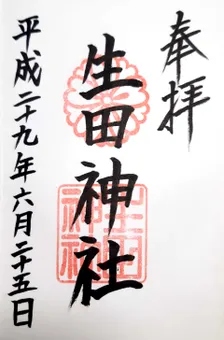 奉拝
生田神社
平成二十九年六月二十五日